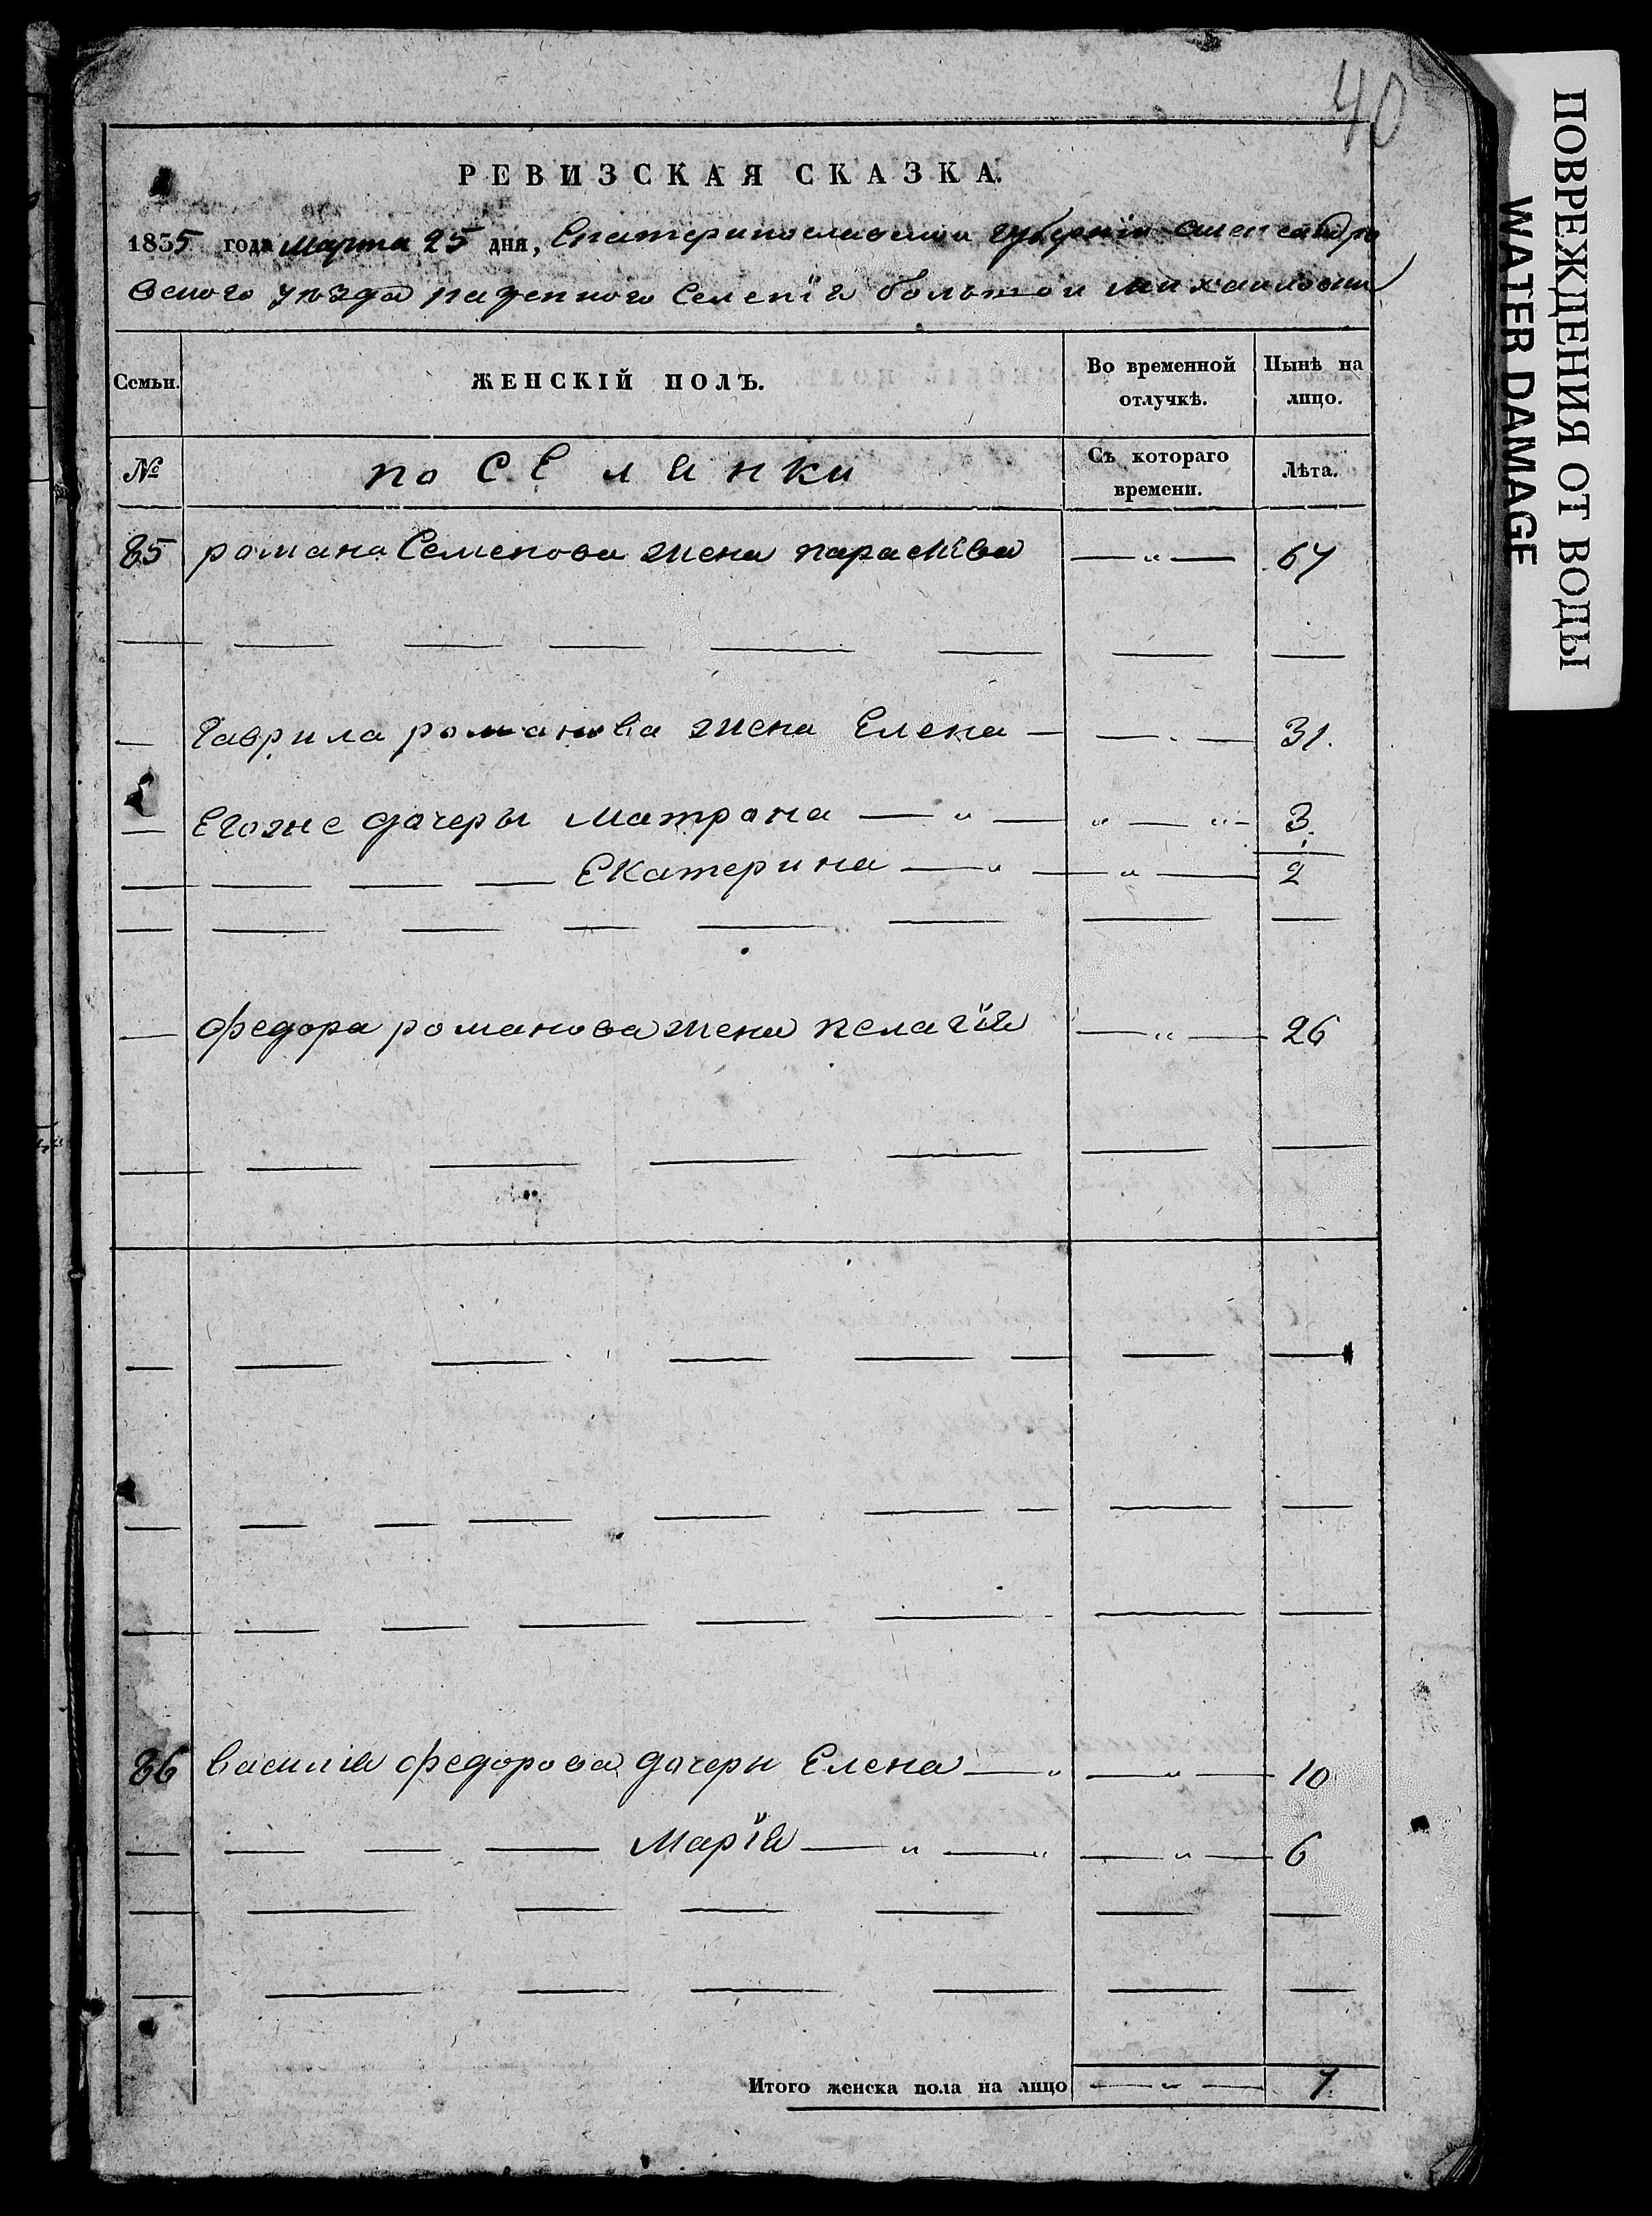 40
РЕВИЗСКАЯ СКАЗКА.
1835 года марта 25 дня, Екатеринославской губернии Александро
вского уезда казенного Селенїя большой михаиловки
Семьи. ЖЕНСКІЙ ПОЛЪ. Во временной отлучкѣ. Нынѣ на лицо.
№ поселянки Съ котораго времени. Лѣта.
85 романа Семенова жена параскева — " — 67
Гаврила романова жена Елена — — . — 31.
Егоже дочеры матрона — " — " — " — 3.
Екатерина — " — " — 2
федора романова жена пелагїя — " — 26
86 василия федорова дочери Елена — " — " — 10
Марїя — " — " — " — 6
Итого женска пола на лицо — " — 7
ПОВРЕЖДЕНИЯ ОТ ВОДЫ
WATER DAMAGE